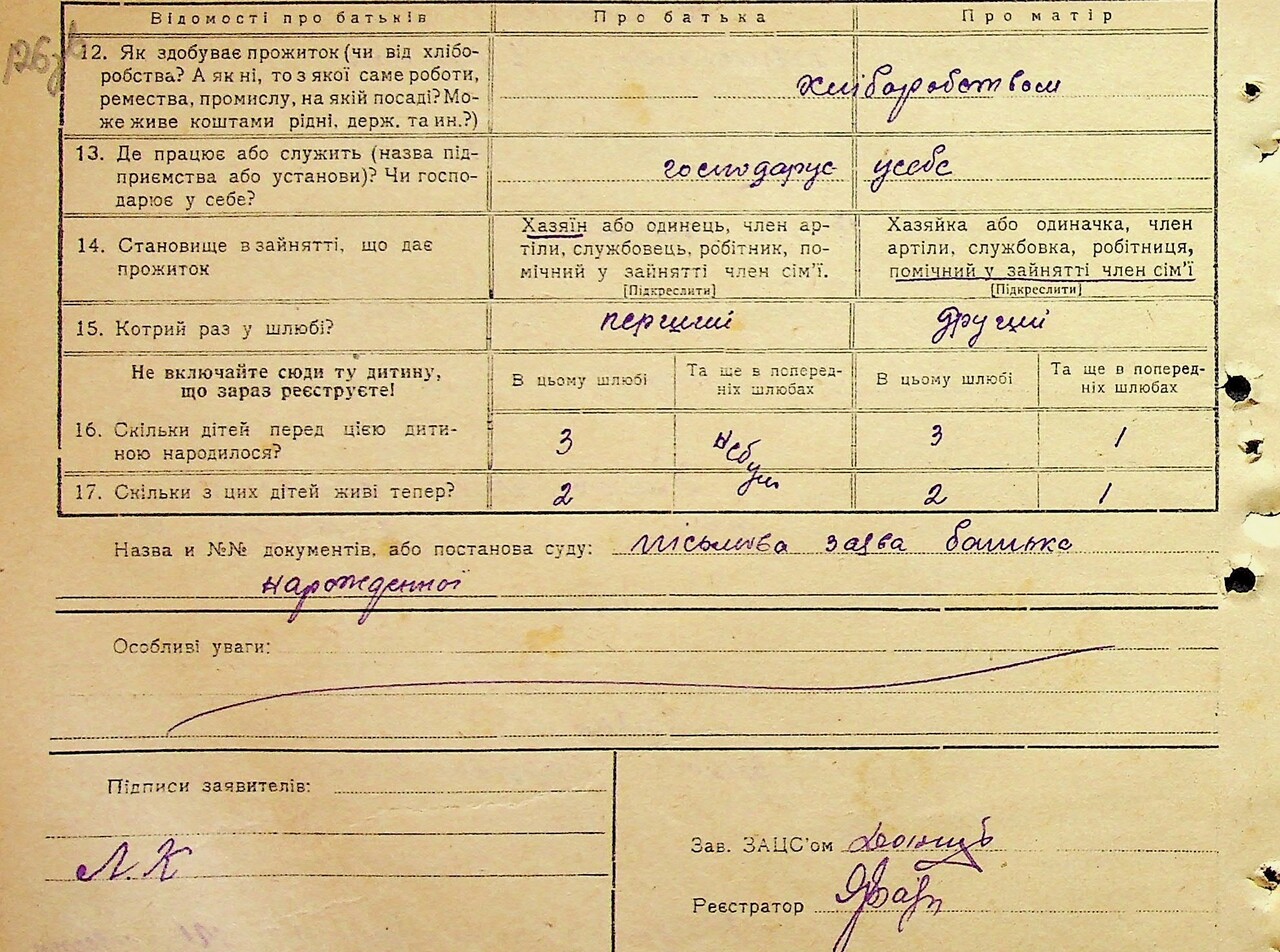 126 зв
Відомості про батьків Про батька Про матір
12. Як здобуває прожиток (чи від хлібо-
робства? А як ні, то з якої саме роботи,
ремества, промислу, на якій посаді? Мо-
же живе коштами рідні, держ. та ин.?)
хліборобством
13. Де працює або служить (назва під-
приємства або установи)? Чи госпо-
дарює у себе?
господарує усебе
14. Становище в зайнятті, що дає
прожиток
Хазяїн або одинець, член ар-
тіли, службовець, робітник, по-
мічний у зайнятті член сім'ї.
[Підкреслити]
Хазяйка або одиначка, член
артіли, службовка, робітниця,
помічний у зайнятті член сім'ї
[Підкреслити]
15. Котрий раз у шлюбі? перший другий
Не включайте сюди ту дитину,
що зараз реєструєте!
В цьому шлюбі
Та ще в поперед-
ніх шлюбах
В цьому шлюбі
Та ще в поперед-
ніх шлюбах
16. Скільки дітей перед цією дити-
ною народилося?
3 небули 3 1
17. Скільки з цих дітей живі тепер? 2 2 1
Назва и №№ документів, або постанова суду: письмова заява батька
нарожденної
Особливі уваги:
Підписи заявителів:
Л.К
Зав. ЗАЦС'ом
Реєстратор